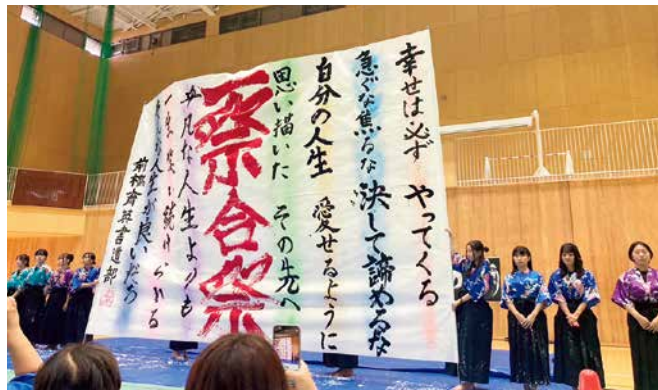 幸せは必ず やってくる
急ぐな焦るな 決して諦めるな
自分の人生 愛せるように
思い描いた その先へ
翠合祭
平凡な人生よりも
一生笑い続けられる
そんな人生が良いだろ
前橋育英書道部